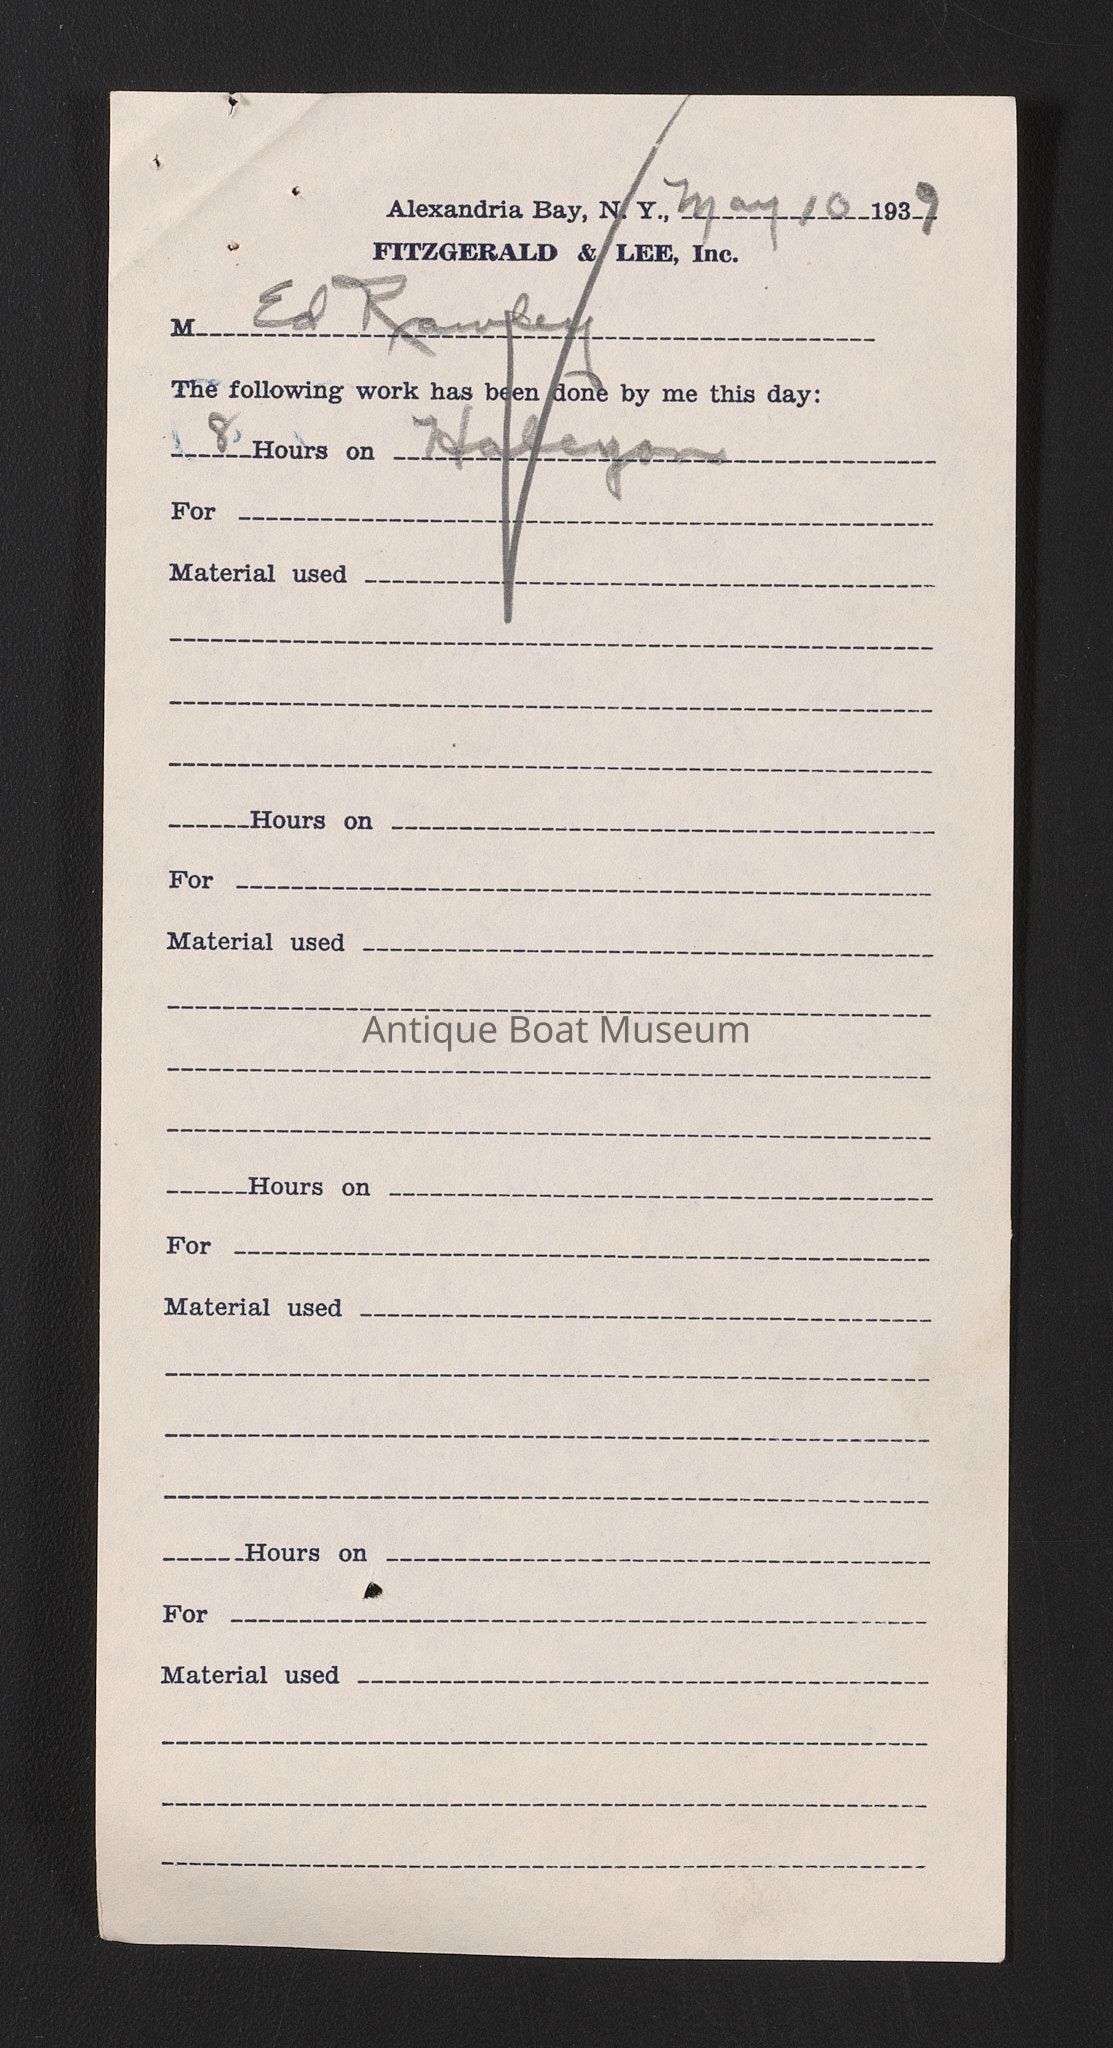 Alexandria Bay, N. Y., May 10 1939
FITZGERALD & LEE, Inc.
M Ed
The following work has been done by me this day:
8 Hours on Halcyon
For
Material used
Hours on
For
Material used
Antique Boat Museum
Hours on
For
Material used
Hours on
For
Material used